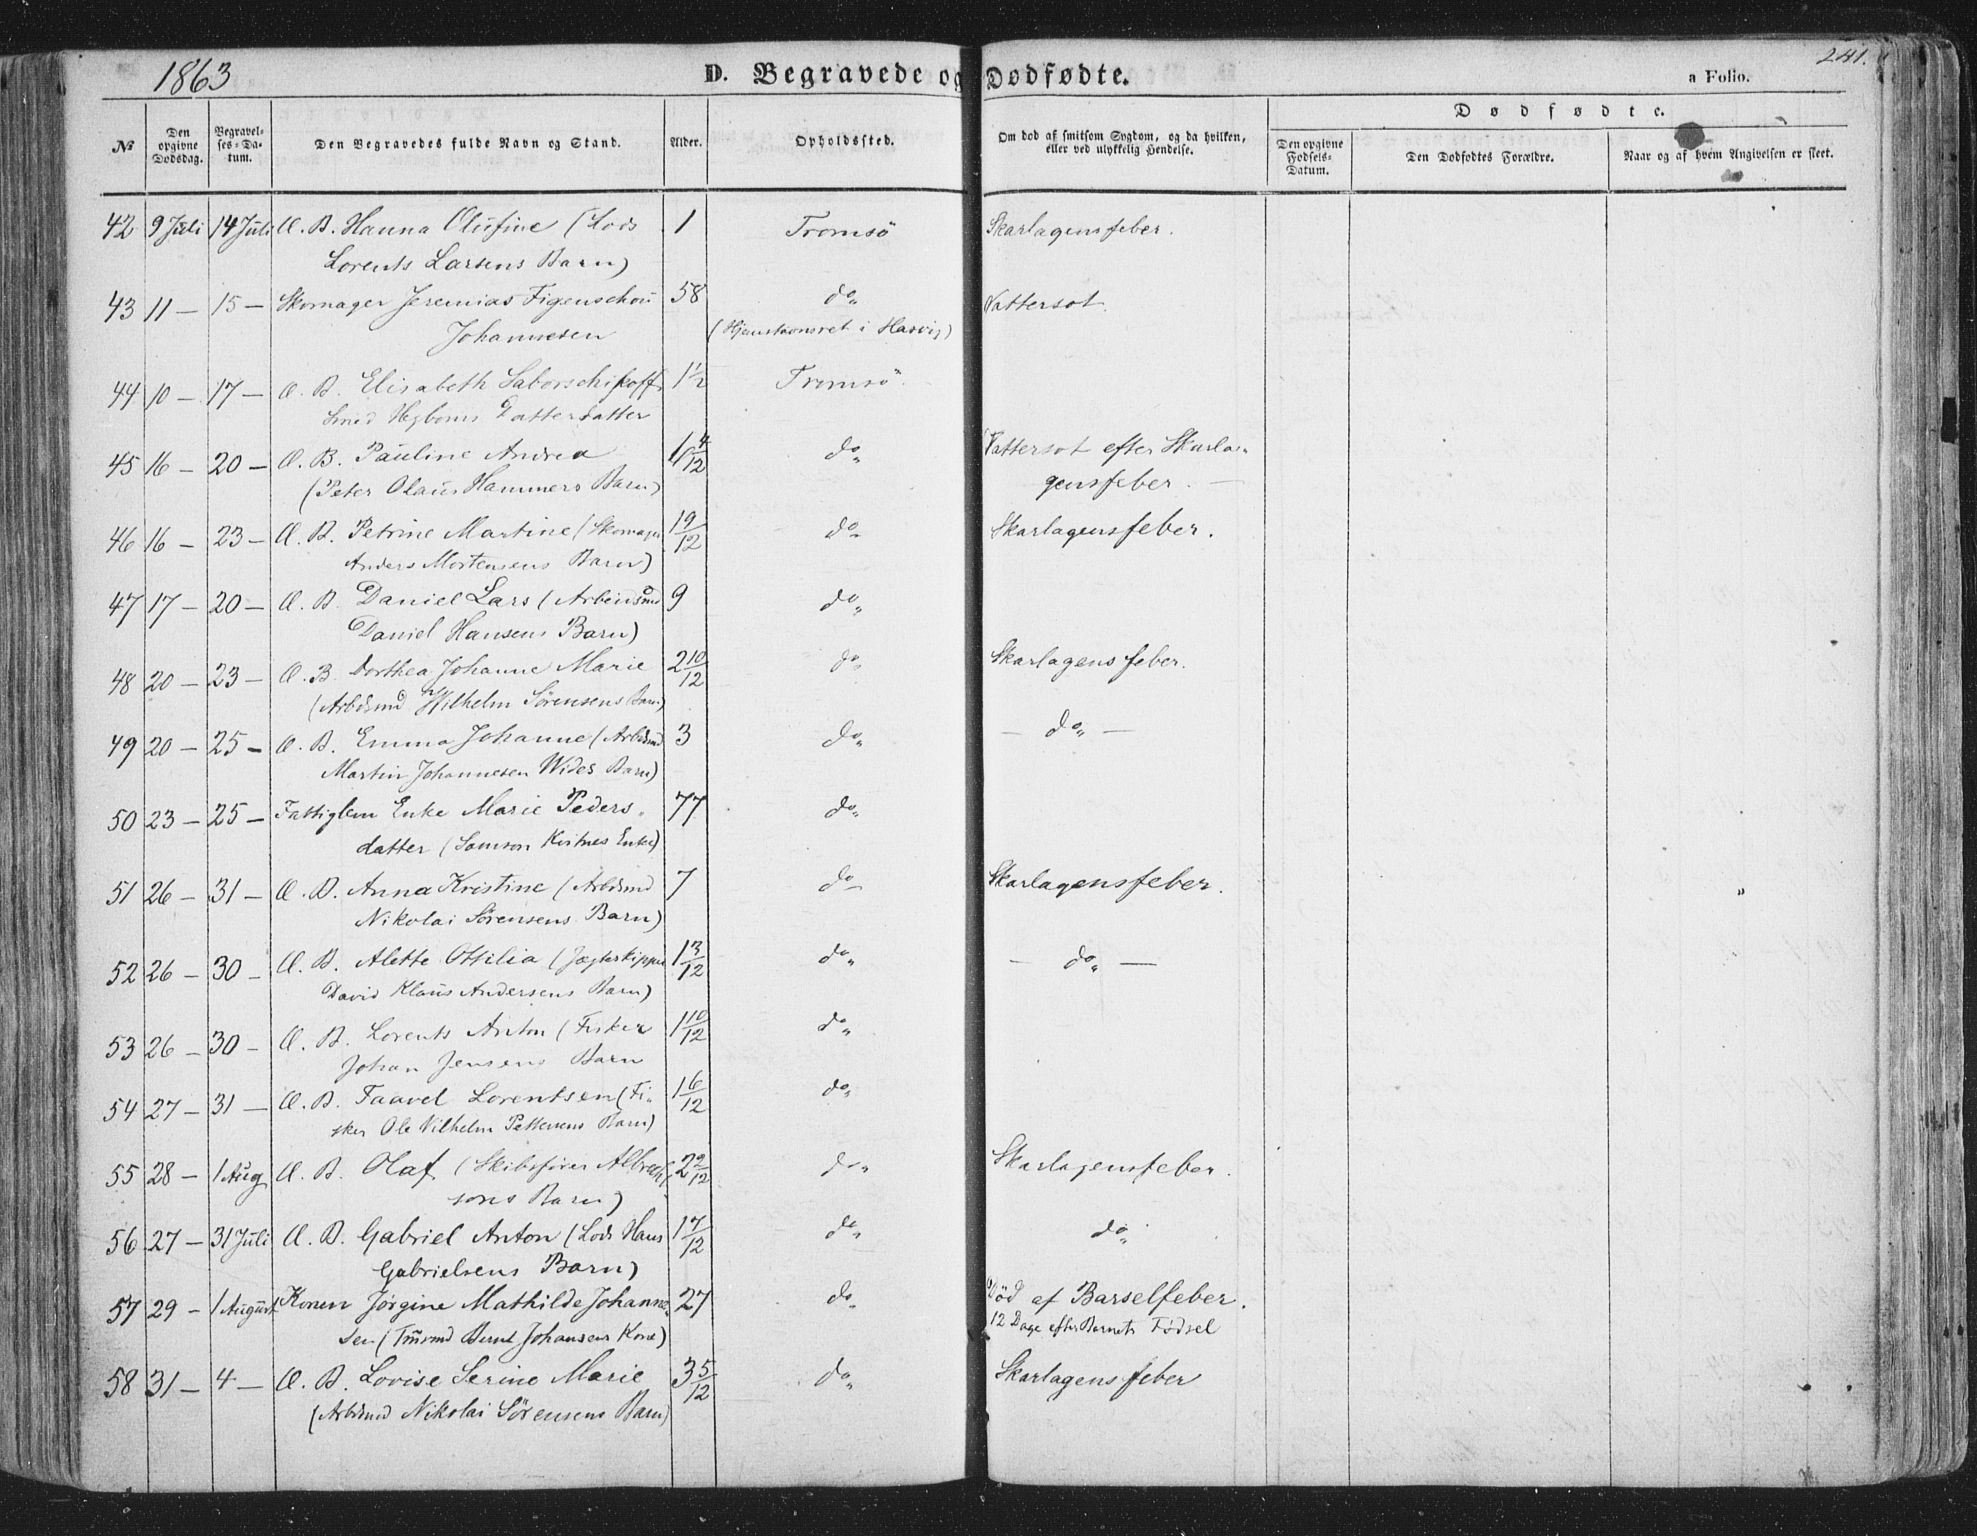 1863 D. Begravede og Dødfødte. a Folio. 241.
№ Den opgivne Dødsdag. Begravelses-Datum. Den Begravedes fulde Navn og Stand. Alder. Opholdssted. Om død af smitsom Sygdom, og da hvilken, eller ved ulykkelig Hendelse. Dødfødte.
Den opgivne Fødsels-Datum. Den Dødfødtes Forældre. Naar og af hvem Angivelsen er skeet.
42 9 Juli 14 Juli Æ. B. Hanna Olufine (Lods 1 Tromsö Skarlagensfeber.
Lorents Larsens Barn)
43 11 — 15 — Skomager Jeremias Figenschou 58 do Vattersot.
Johannesen (Hjemstavnsret i Hasvig)
44 10 — 17 — Æ. B. Elisabeth Saborschikoff 1½ Tromsö.
Smed Hegboms Datterdatter
45 16 — 20 — Æ. B. Pauline Andrea 4/12 do Vattersot efter Skarla-
(Peter Olaus Hammers Barn) gensfeber. —
46 16 — 23 — Æ. B. Petrine Martine (Skomager 19/12 do Skarlagensfeber.
Anders Mortensens Barn)
47 17 — 20 — Æ. B. Daniel Lars (Arbeidsmd 9 do
Daniel Hansens Barn)
48 20 — 23 — Æ. B. Dorthea Johanne Marie 2 10/12 do Skarlagensfeber.
(Arbdsmd Wilhelm Sörensens Barn)
49 20 — 25 — Æ. B. Emma Johanne (Arbdsmd 3 do — do —
Martin Johannesen Wides Barn)
50 23 — 25 — Fattiglem Enke Marie Peders- 77 do
datter (Samson Enke)
51 26 — 31 — Æ. B. Anna Kristine (Arbdsmd 7 do Skarlagensfeber.
Nikolai Sörensens Barn)
52 26 — 30 — Æ. B. Alette Ottilia (Jægteskipper 1 3/12 do — do —
David Klaus Andersens Barn)
53 26 — 30 — Æ. B. Lorents Anton (Fisker 1 10/12 do
Johan Jensens Barn
54 27 — 31 — Æ. B. Faavel Lorentsen (Fi- 1 6/12 do
sker Ole Vilhelm Pettersens Barn)
55 28 — 1 Aug Æ. B. Olaf (Skibsfører Albrecht- 2 2/12 do Skarlagensfeber.
sons Barn)
56 27 — 31 Juli Æ. B. Gabriel Anton (Lods Hans 1 7/12 do do
Gabrielsens Barn)
57 29 — 1 August Konen Jörgine Mathilde Johanne- 27 do Död af Barselfeber.
sen (Tmrmd Bernt Johansens Kone) 12 Dage efter Barnets Födsel
58 31 — 4 — Æ. B. Lovise Serine Marie 3 5/12 do Skarlagensfeber
(Arbdsmd Nikolai Sörensens Barn)